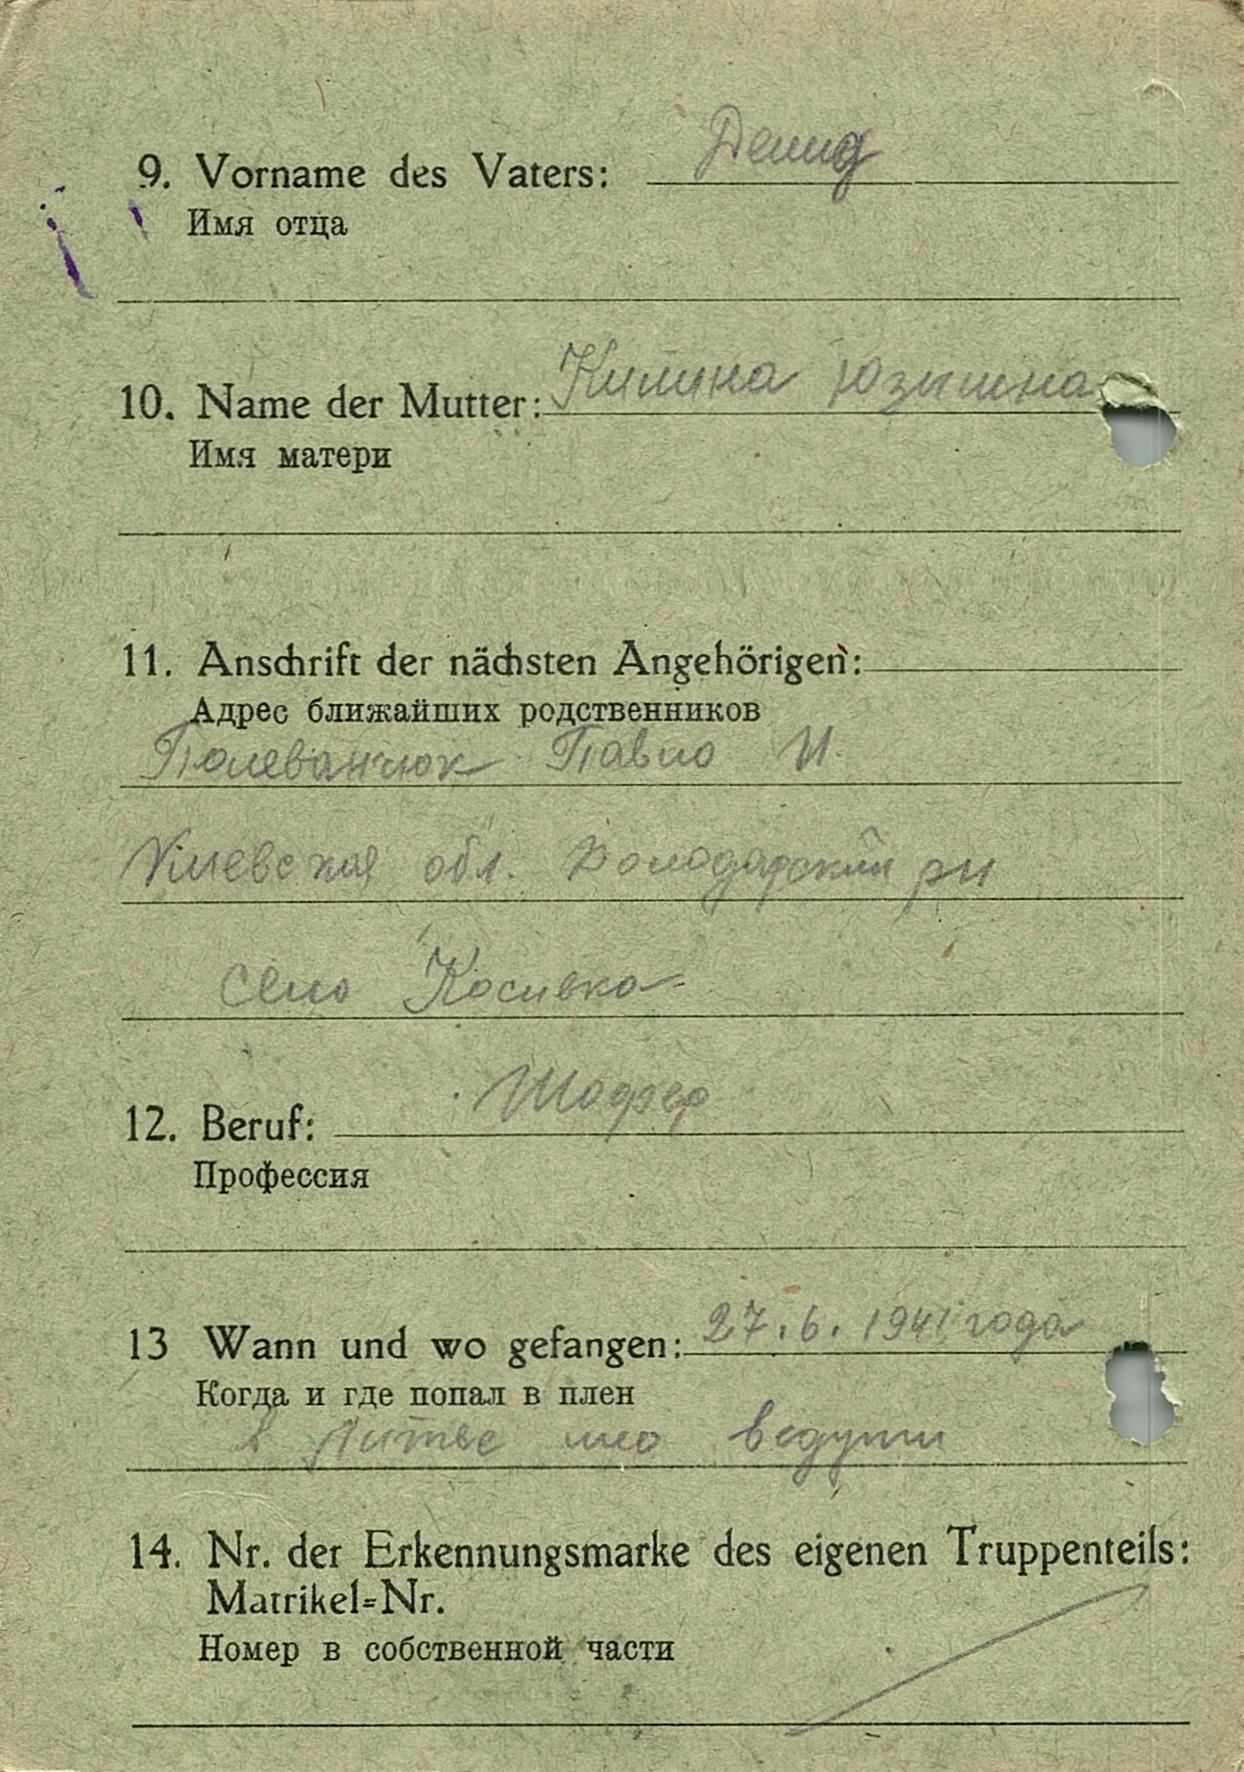 9. Vorname des Vaters: Демид
Имя отца
10. Name der Mutter: Килина Юзышна
Имя матери
11. Anschrift der nächsten Angehörigen:
Адрес ближайших родственников
Полеванчюк Павло И.
Киевская обл. Володарский рн
село Косивка
12. Beruf: Шофер
Профессия
13 Wann und wo gefangen: 27.6.1941 года
Когда и где попал в плен
в Литве
14. Nr. der Erkennungsmarke des eigenen Truppenteils:
Matrikel=Nr.
Номер в собственной части